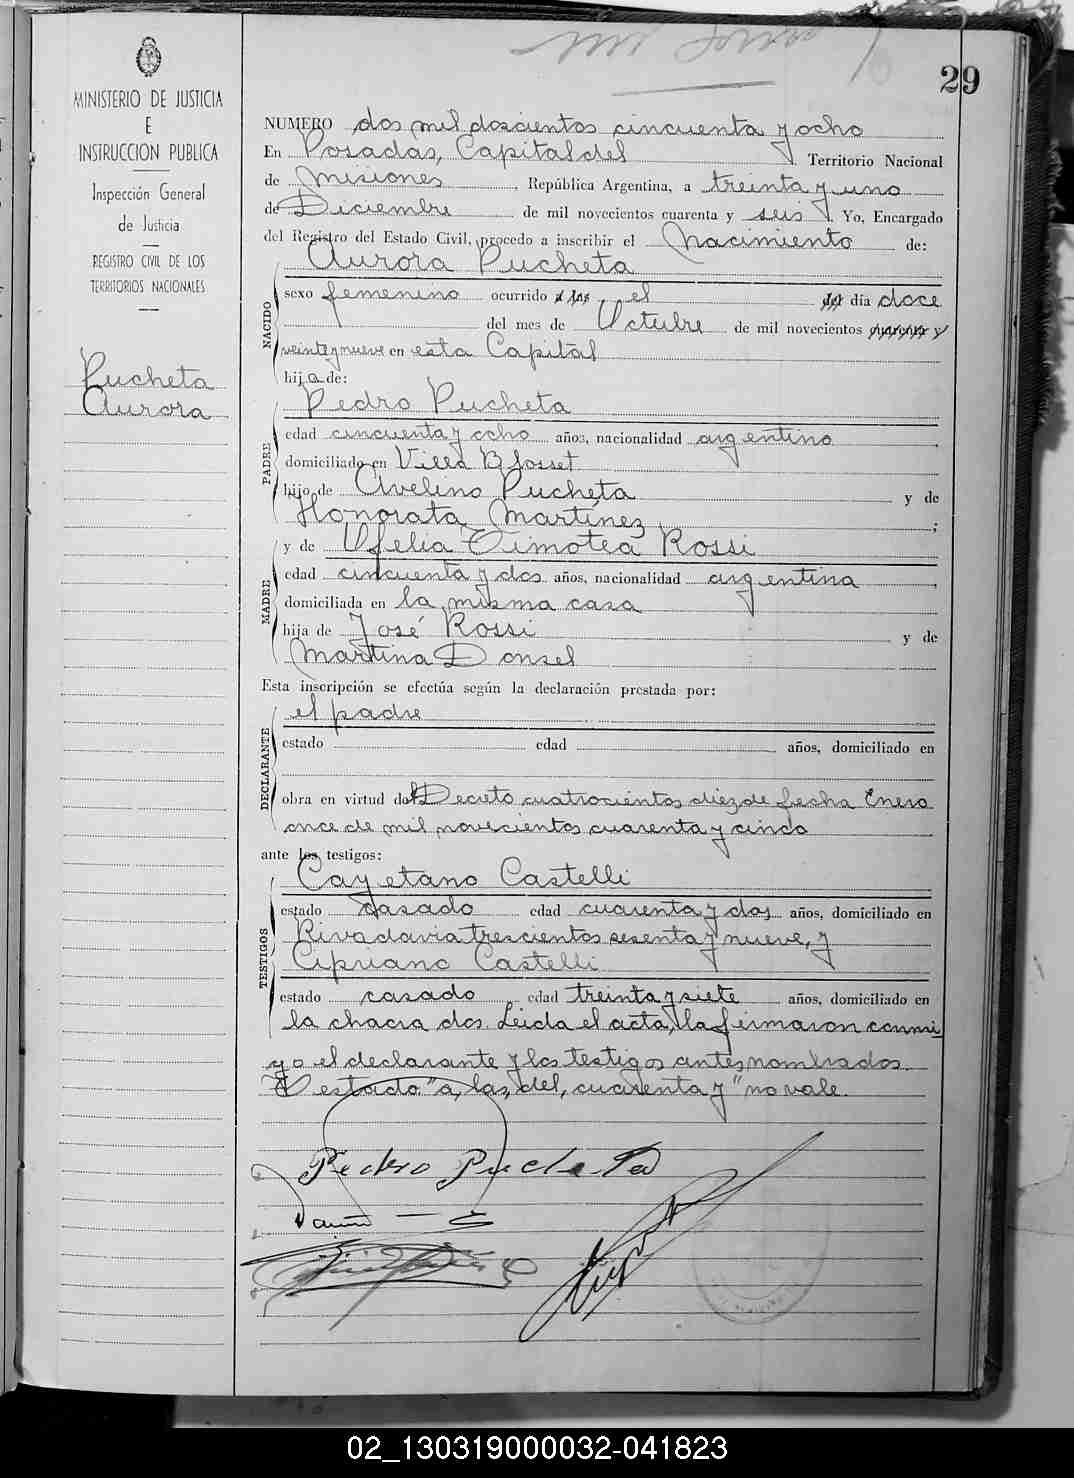 29
MINISTERIO DE JUSTICIA
E
INSTRUCCION PUBLICA
Inspección General
de Justicia
REGISTRO CIVIL DE LOS
TERRITORIOS NACIONALES
Pucheta
Aurora
NUMERO dos mil doscientos cincuenta y ocho
En Posadas, Capital del Territorio Nacional
de Misiones, República Argentina, a treinta y uno
de Diciembre de mil novecientos cuarenta y seis. Yo, Encargado
del Registro del Estado Civil, procedo a inscribir el Nacimiento de:
Aurora Pucheta
NACIDO
sexo femenino ocurrido a las, el del día doce
del mes de Octubre de mil novecientos cuarenta y
veinte y nueve en esta Capital
hija de:
Pedro Pucheta
PADRE
edad cincuenta y ocho años, nacionalidad argentino
domiciliado en Villa Blosset
hijo de Avelino Pucheta y de
Honorata Martínez;
y de Ofelia Timotea Rossi
MADRE
edad cincuenta y dos años, nacionalidad argentina
domiciliada en la misma casa
hija de José Rossi y de
Martina Donsel
Esta inscripción se efectúa según la declaración prestada por:
el padre
DECLARANTE
estado edad años, domiciliado en
obra en virtud del Decreto cuatrocientos diez de fecha Enero
once de mil novecientos cuarenta y cinco
ante los testigos:
Cayetano Castelli
TESTIGOS
estado casado edad cuarenta y dos años, domiciliado en
Rivadavia trescientos sesenta y nueve, y
Cipriano Castelli
estado casado edad treinta y siete años, domiciliado en
la chacra dos. Leída el acta, la firmaron conmi
go el declarante y los testigos antes nombrados.
estado "a, las, del, cuarenta y" no vale.
Pedro Pucheta
02_130319000032-041823